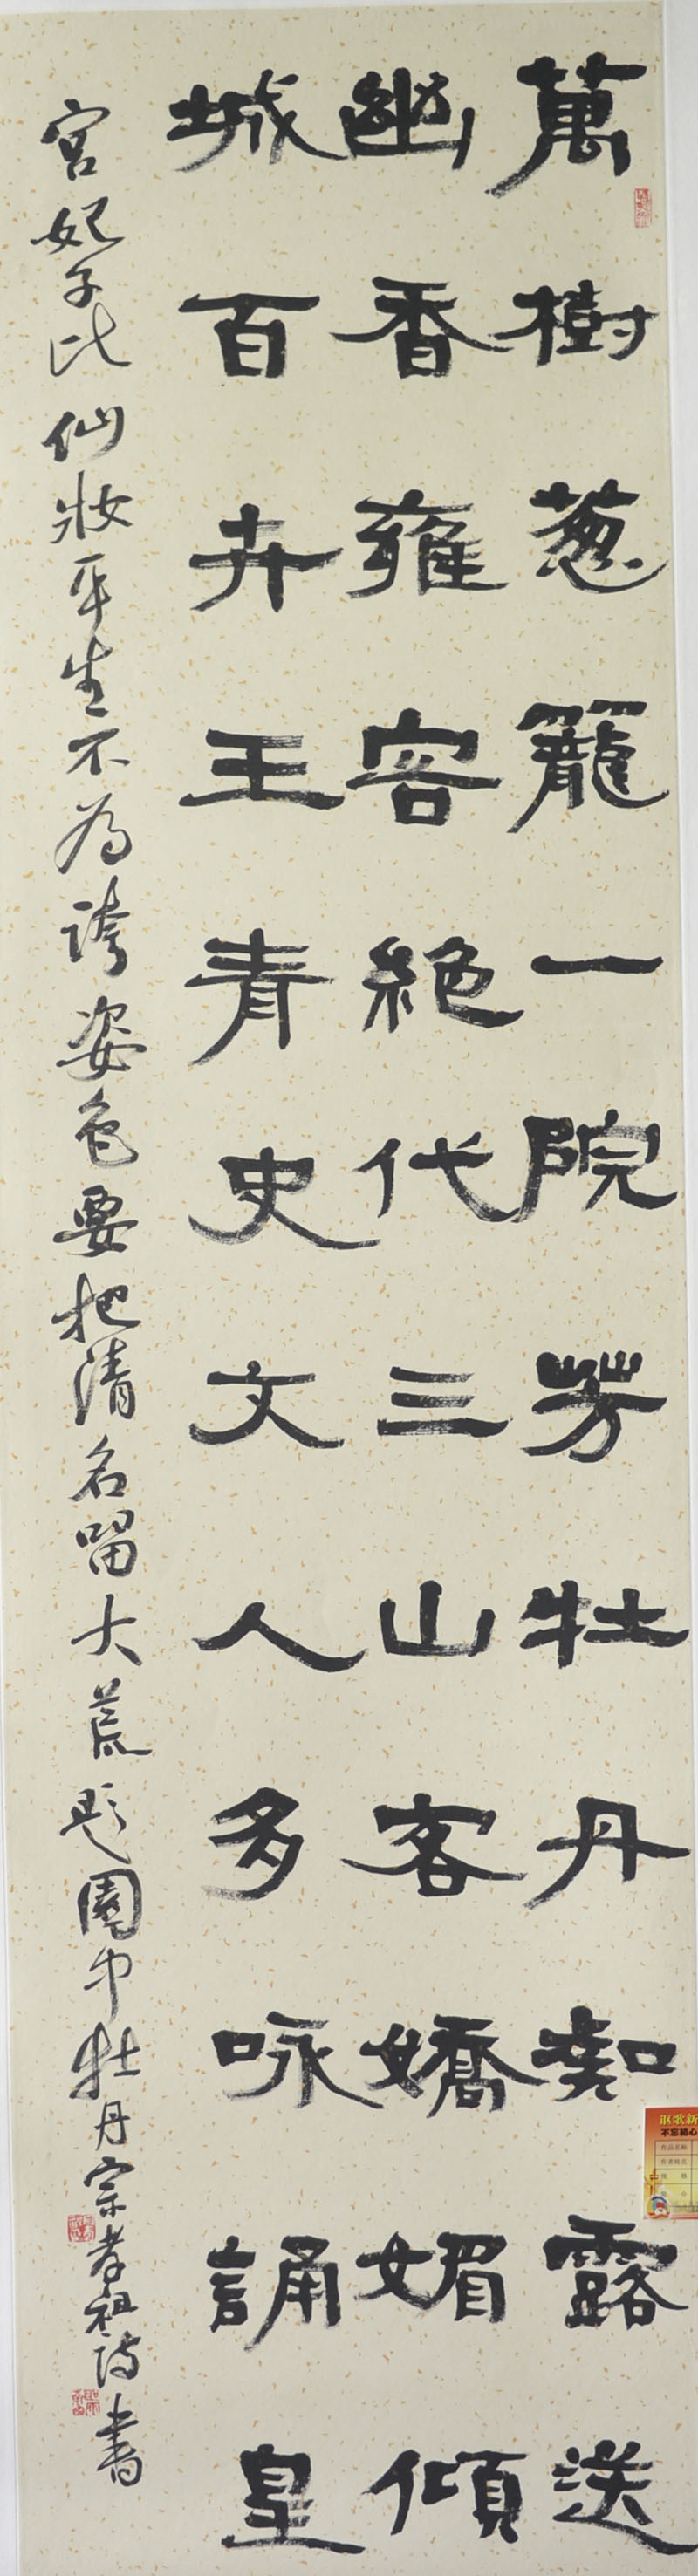 萬樹葱籠一院芳牡丹凝露送
幽香雍容絕代三山客嬌媚傾
城百卉王青史文人多咏誦皇
宮妃子比仙妝平生不为誇姿色要把清名留大荒题園中牡丹宗孝祖詩書
訴歌新
不忘初心
作品名称
作者姓名